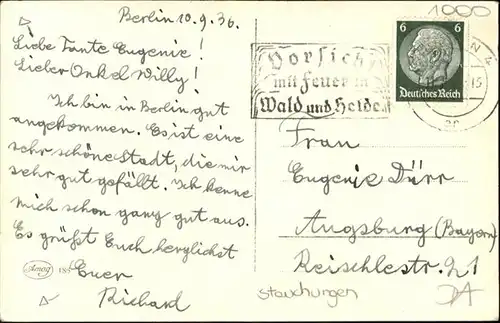 Berlin 10.9.36.
Liebe Tante Eugenie!
Lieber Onkel Willy!
Ich bin in Berlin gut
angekommen. Es ist eine
sehr schöne Stadt, die mir
sehr gut gefällt. Ich kenne
mich schon ganz gut aus.
Es grüßt Euch herzlichst
Euer
Richard
Amag
1000
6 6
Deutsches Reich
Vorsicht
mit Feuer in
Wald und Heide
Frau
Eugenie Dürr
Augsburg (Bayern)
Reischlestr. 21
Stauchungen